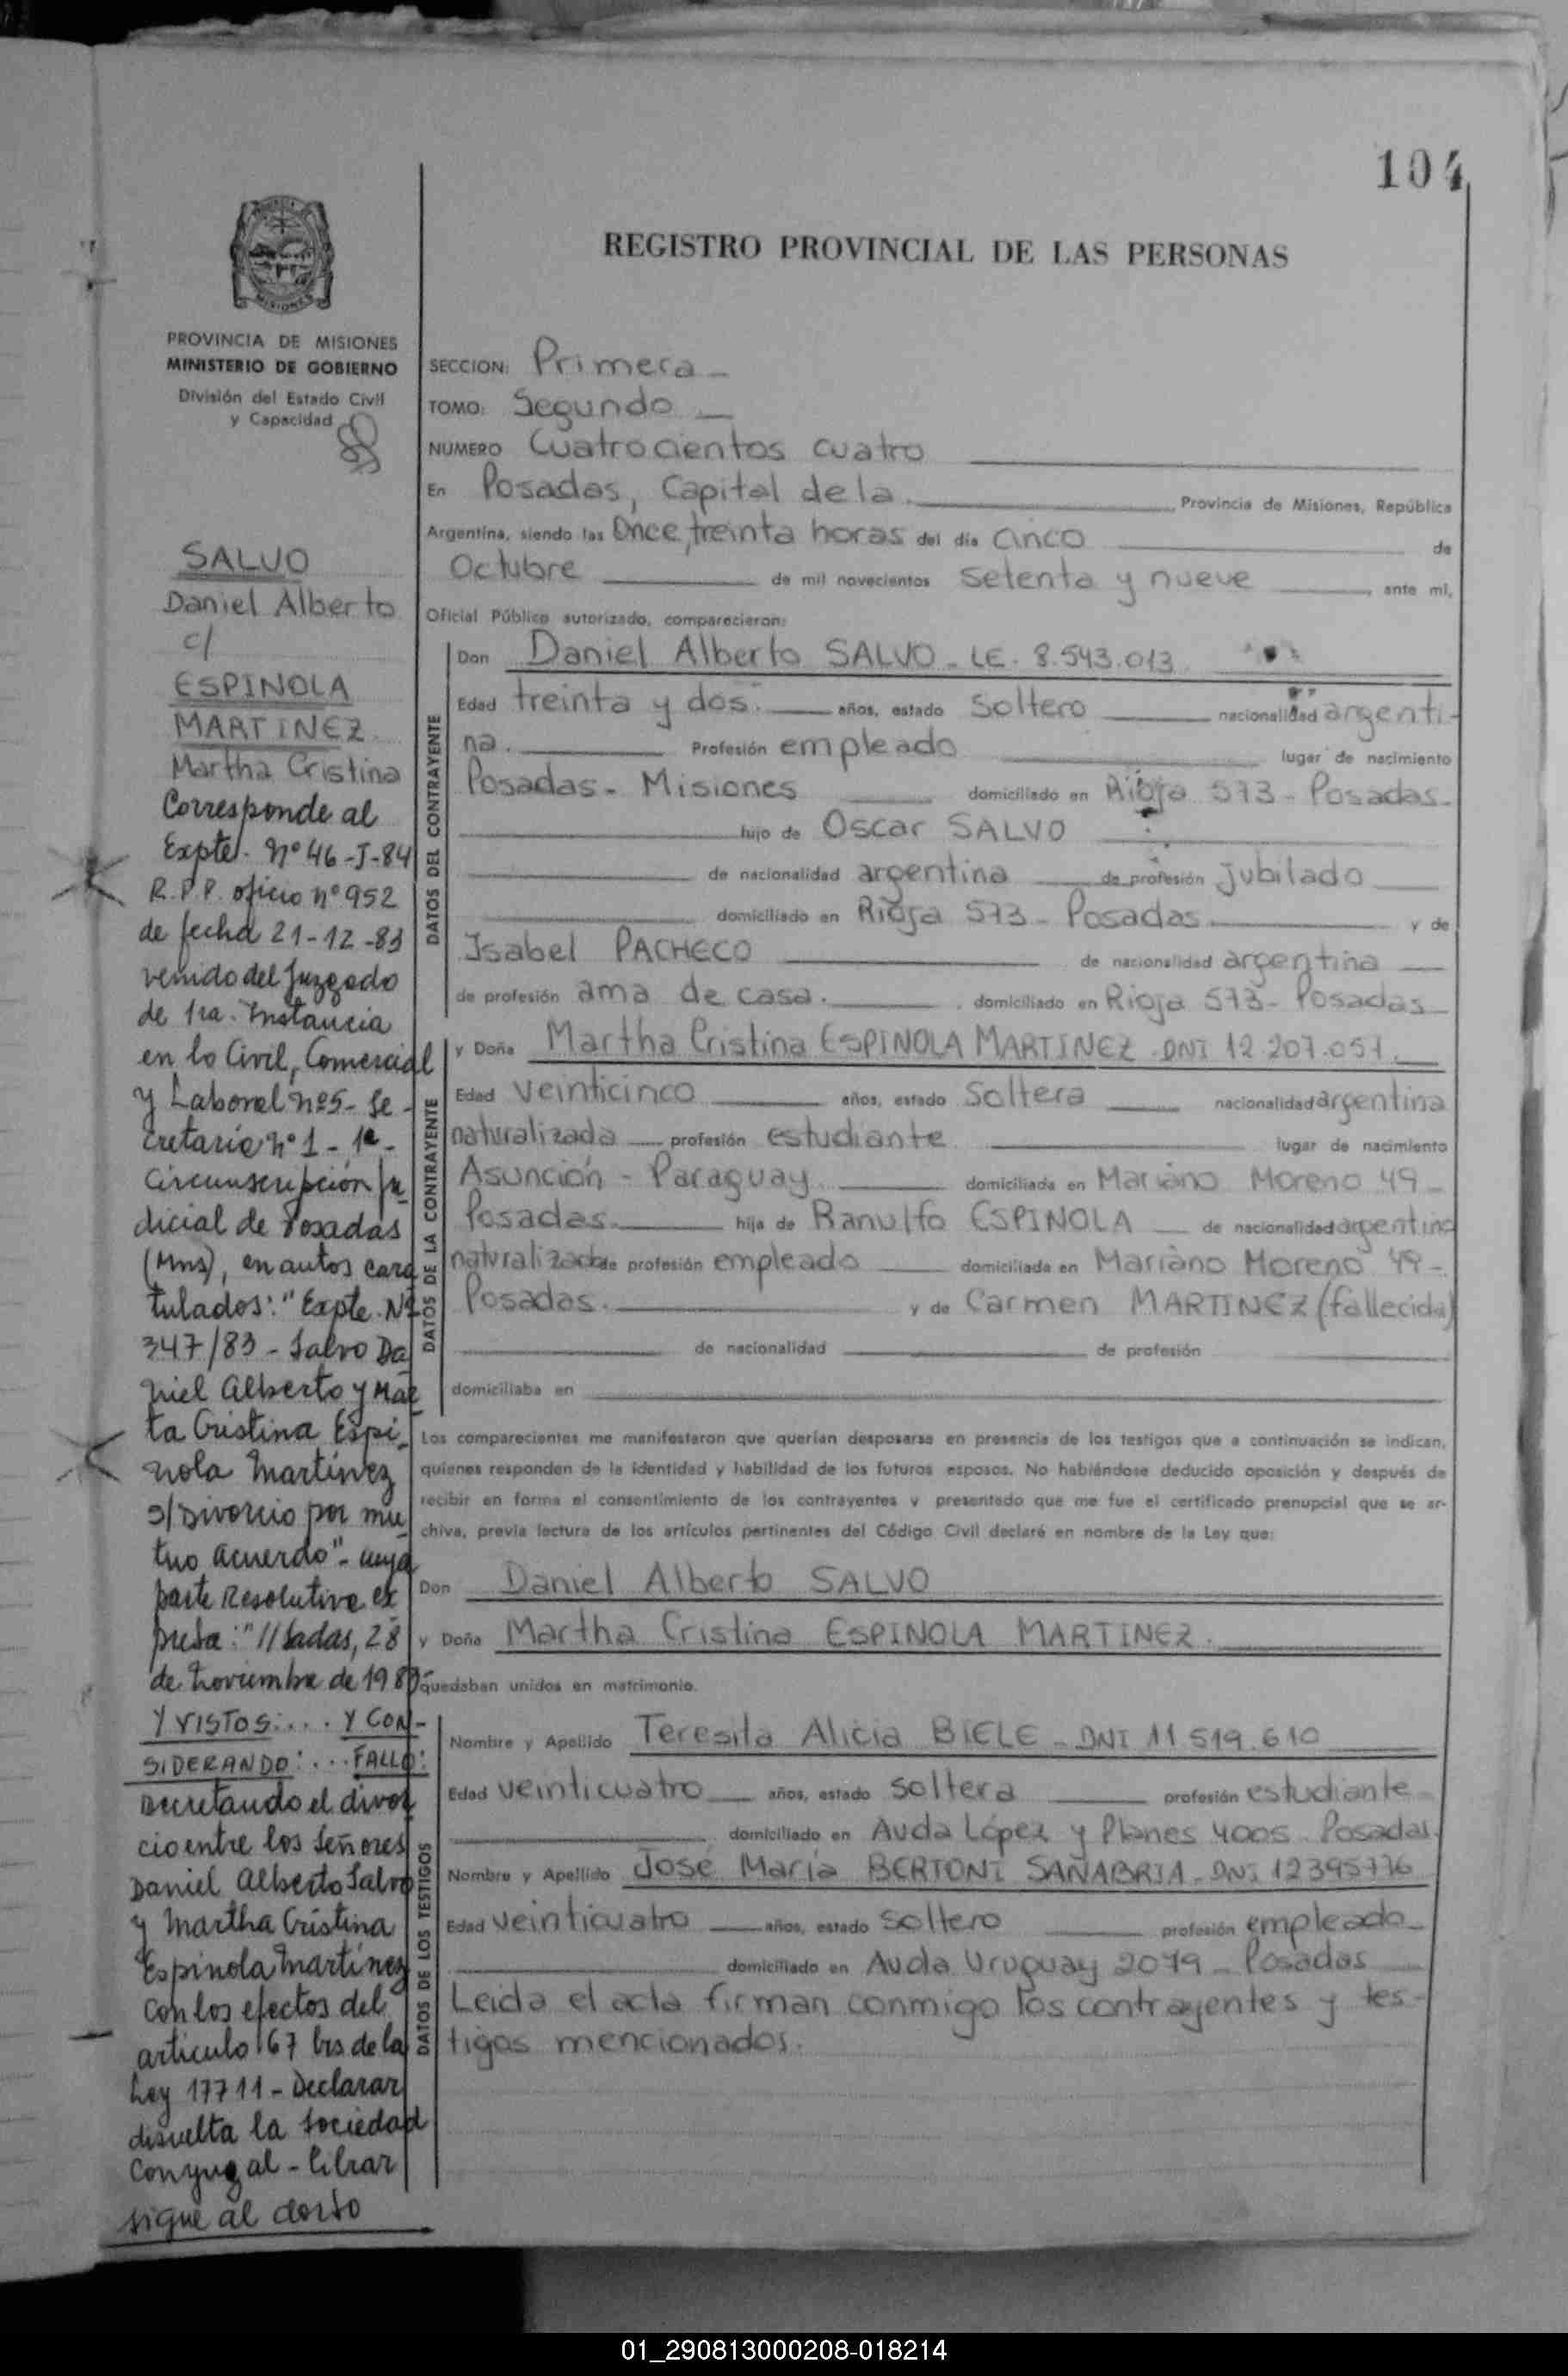 104
REGISTRO PROVINCIAL DE LAS PERSONAS
PROVINCIA DE MISIONES
MINISTERIO DE GOBIERNO
División del Estado Civil
y Capacidad
SALVO
Daniel Alberto
c/
ESPINOLA
MARTINEZ
Martha Cristina
Corresponde al
Expte. Nº 46-J-84
R.P.P. oficio nº 952
de fecha 21-12-83
venido del Juzgado
de 1ra. Instancia
en lo Civil, Comercial
y Laboral nº5- Se-
cretaría nº 1 - 1ª-
Circunscripción Ju
dicial de Posadas
(Mns), en autos cara
tulados: "Expte. Nº
347/83 - Salvo Da
niel Alberto y Mar
ta Cristina Espi-
nola Martínez
s/Divorcio por mu
tuo acuerdo"- cuya
parte Resolutiva ex
presa: "//sadas, 28
de noviembre de 1983-
Y VISTOS:... Y CON-
SIDERANDO:... FALLO:
Decretando el divor
cio entre los Señores
Daniel Alberto Salvo
y Martha Cristina
Espinola Martínez
con los efectos del
artículo 67 bis de la
Ley 17711 - Declarar
disuelta la sociedad
Conyugal - librar
sigue al dorso
SECCION: Primera -
TOMO: Segundo -
NUMERO Cuatrocientos cuatro
En Posadas, Capital de la Provincia de Misiones, República
Argentina, siendo las Once, treinta horas del día cinco de
Octubre de mil novecientos setenta y nueve, ante mí,
Oficial Público autorizado, comparecieron:
DATOS DEL CONTRAYENTE
Don Daniel Alberto SALVO - LE. 8.543.013
Edad treinta y dos. años, estado soltero nacionalidad argenti-
na. Profesión empleado lugar de nacimiento
Posadas - Misiones domiciliado en Rioja 573 - Posadas -
hijo de Oscar SALVO
de nacionalidad argentina de profesión jubilado
domiciliado en Rioja 573 - Posadas y de
Isabel PACHECO de nacionalidad argentina
de profesión ama de casa. domiciliado en Rioja 573 - Posadas
DATOS DE LA CONTRAYENTE
y Doña Martha Cristina ESPINOLA MARTINEZ DNI 12.207.057
Edad veinticinco años, estado soltera nacionalidad argentina
naturalizada profesión estudiante lugar de nacimiento
Asunción - Paraguay domiciliada en Mariano Moreno 49 -
Posadas. hija de Ranulfo ESPINOLA de nacionalidad argentina
naturalizado de profesión empleado domiciliada en Mariano Moreno 49 -
Posadas. y de Carmen MARTINEZ (fallecida)
de nacionalidad de profesión
domiciliaba en
Los comparecientes me manifestaron que querían desposarse en presencia de los testigos que a continuación se indican,
quienes responden de la identidad y habilidad de los futuros esposos. No habiéndose deducido oposición y después de
recibir en forma el consentimiento de los contrayentes y presentado que me fue el certificado prenupcial que se ar-
chiva, previa lectura de los artículos pertinentes del Código Civil declaré en nombre de la Ley que:
Don Daniel Alberto SALVO
y Doña Martha Cristina ESPINOLA MARTINEZ.
quedaban unidos en matrimonio.
DATOS DE LOS TESTIGOS
Nombre y Apellido Teresita Alicia BIELE - DNI 11 519.610
Edad veinticuatro años, estado soltera profesión estudiante
domiciliado en Avda López y Planes 4005 - Posadas.
Nombre y Apellido José María BERTONI SANABRIA - DNI 12395776
Edad veinticuatro años, estado soltero profesión empleado
domiciliado en Avda Uruguay 2079 - Posadas
Leida el acta firman conmigo los contrayentes y tes-
tigos mencionados.
01_290813000208-018214